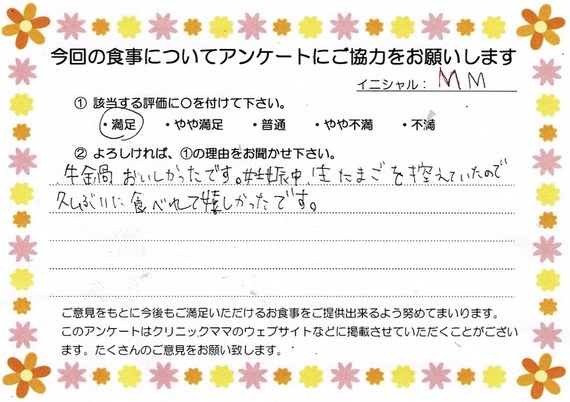 今回の食事についてアンケートにご協力をお願いします
イニシャル： MM
① 該当する評価に○を付けて下さい。
・満足 ・やや満足 ・普通 ・やや不満 ・不満
② よろしければ、①の理由をお聞かせ下さい。
牛鍋 おいしかったです。妊娠中、生たまごを控えていたので
久しぶりに食べれて嬉しかったです。
ご意見をもとに今後もご満足いただけるお食事をご提供出来るよう努めてまいります。
このアンケートはクリニックママのウェブサイトなどに掲載させていただくことがござい
ます。たくさんのご意見をお願い致します。